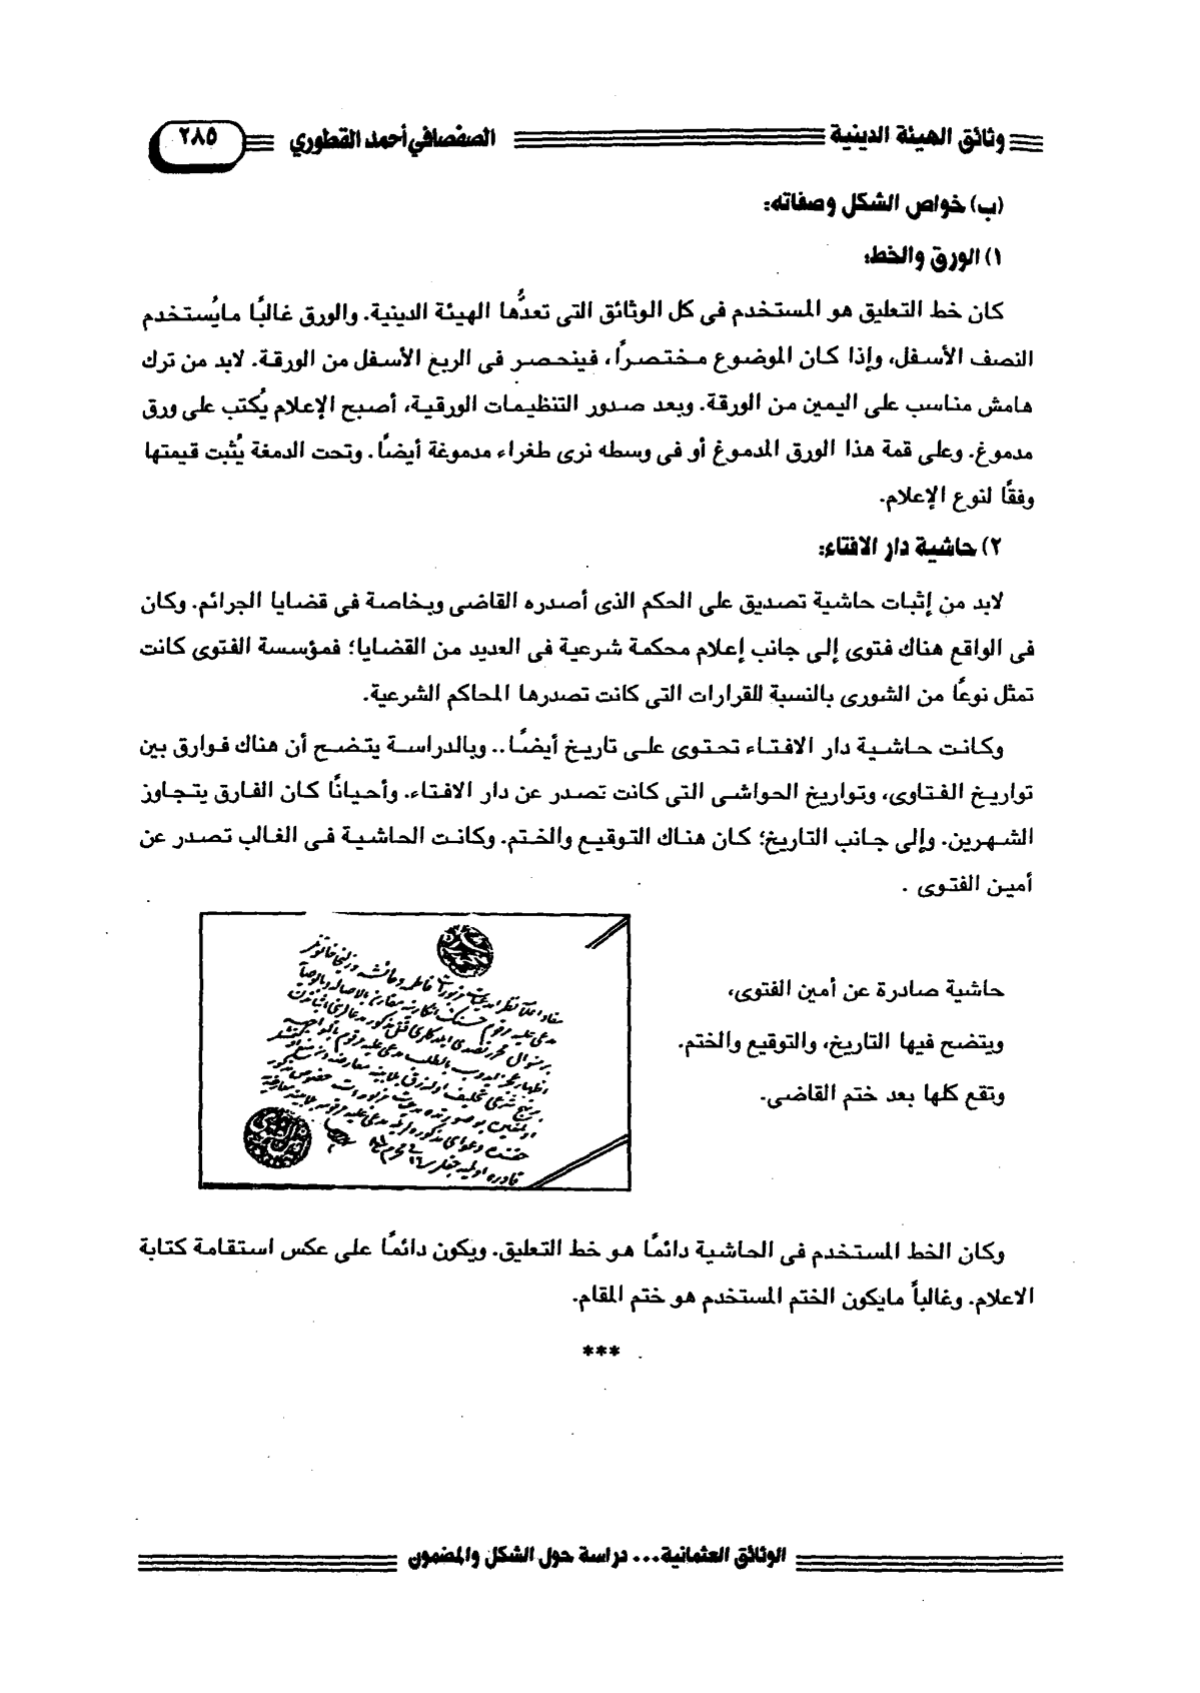 وثائق الهيئة الدينية الصفصافي أحمد القطوري ٢٨٥
(ب) خواص الشكل وصفاته:
١) الورق والخط:
كان خط التعليق هو المستخدم فى كل الوثائق التى تعدُّها الهيئة الدينية. والورق غالبًا مايُستخدم
النصف الأسفل، وإذا كان الموضوع مختصراً، فينحصر فى الربع الأسفل من الورقة. لابد من ترك
هامش مناسب على اليمين من الورقة. وبعد صدور التنظيمات الورقية، أصبح الإعلام يُكتب على ورق
مدموغ. وعلى قمة هذا الورق المدموغ أو فى وسطه نرى طغراء مدموغة أيضاً. وتحت الدمغة يُثبت قيمتها
وفقًا لنوع الإعلام.
٢) حاشية دار الافتاء:
لابد من إثبات حاشية تصديق على الحكم الذى أصدره القاضى وبخاصة فى قضايا الجرائم. وكان
فى الواقع هناك فتوى إلى جانب إعلام محكمة شرعية فى العديد من القضايا؛ فمؤسسة الفتوى كانت
تمثل نوعًا من الشورى بالنسبة للقرارات التى كانت تصدرها المحاكم الشرعية.
وكانت حاشية دار الافتاء تحتوى على تاريخ أيضاً.. وبالدراسة يتضح أن هناك فوارق بين
تواريخ الفتاوى، وتواريخ الحواشى التى كانت تصدر عن دار الافتاء. وأحيانًا كان الفارق يتجاوز
الشهرين. وإلى جانب التاريخ؛ كان هناك التوقيع والختم. وكانت الحاشية فى الغالب تصدر عن
أمين الفتوى .
حاشية صادرة عن أمين الفتوى،
ويتضح فيها التاريخ، والتوقيع والختم.
وتقع كلها بعد ختم القاضى.
وكان الخط المستخدم فى الحاشية دائماً هو خط التعليق. ويكون دائماً على عكس استقامة كتابة
الاعلام. وغالباً مايكون الختم المستخدم هو ختم المقام.
***
الوثائق العثمانية... دراسة حول الشكل والمضمون